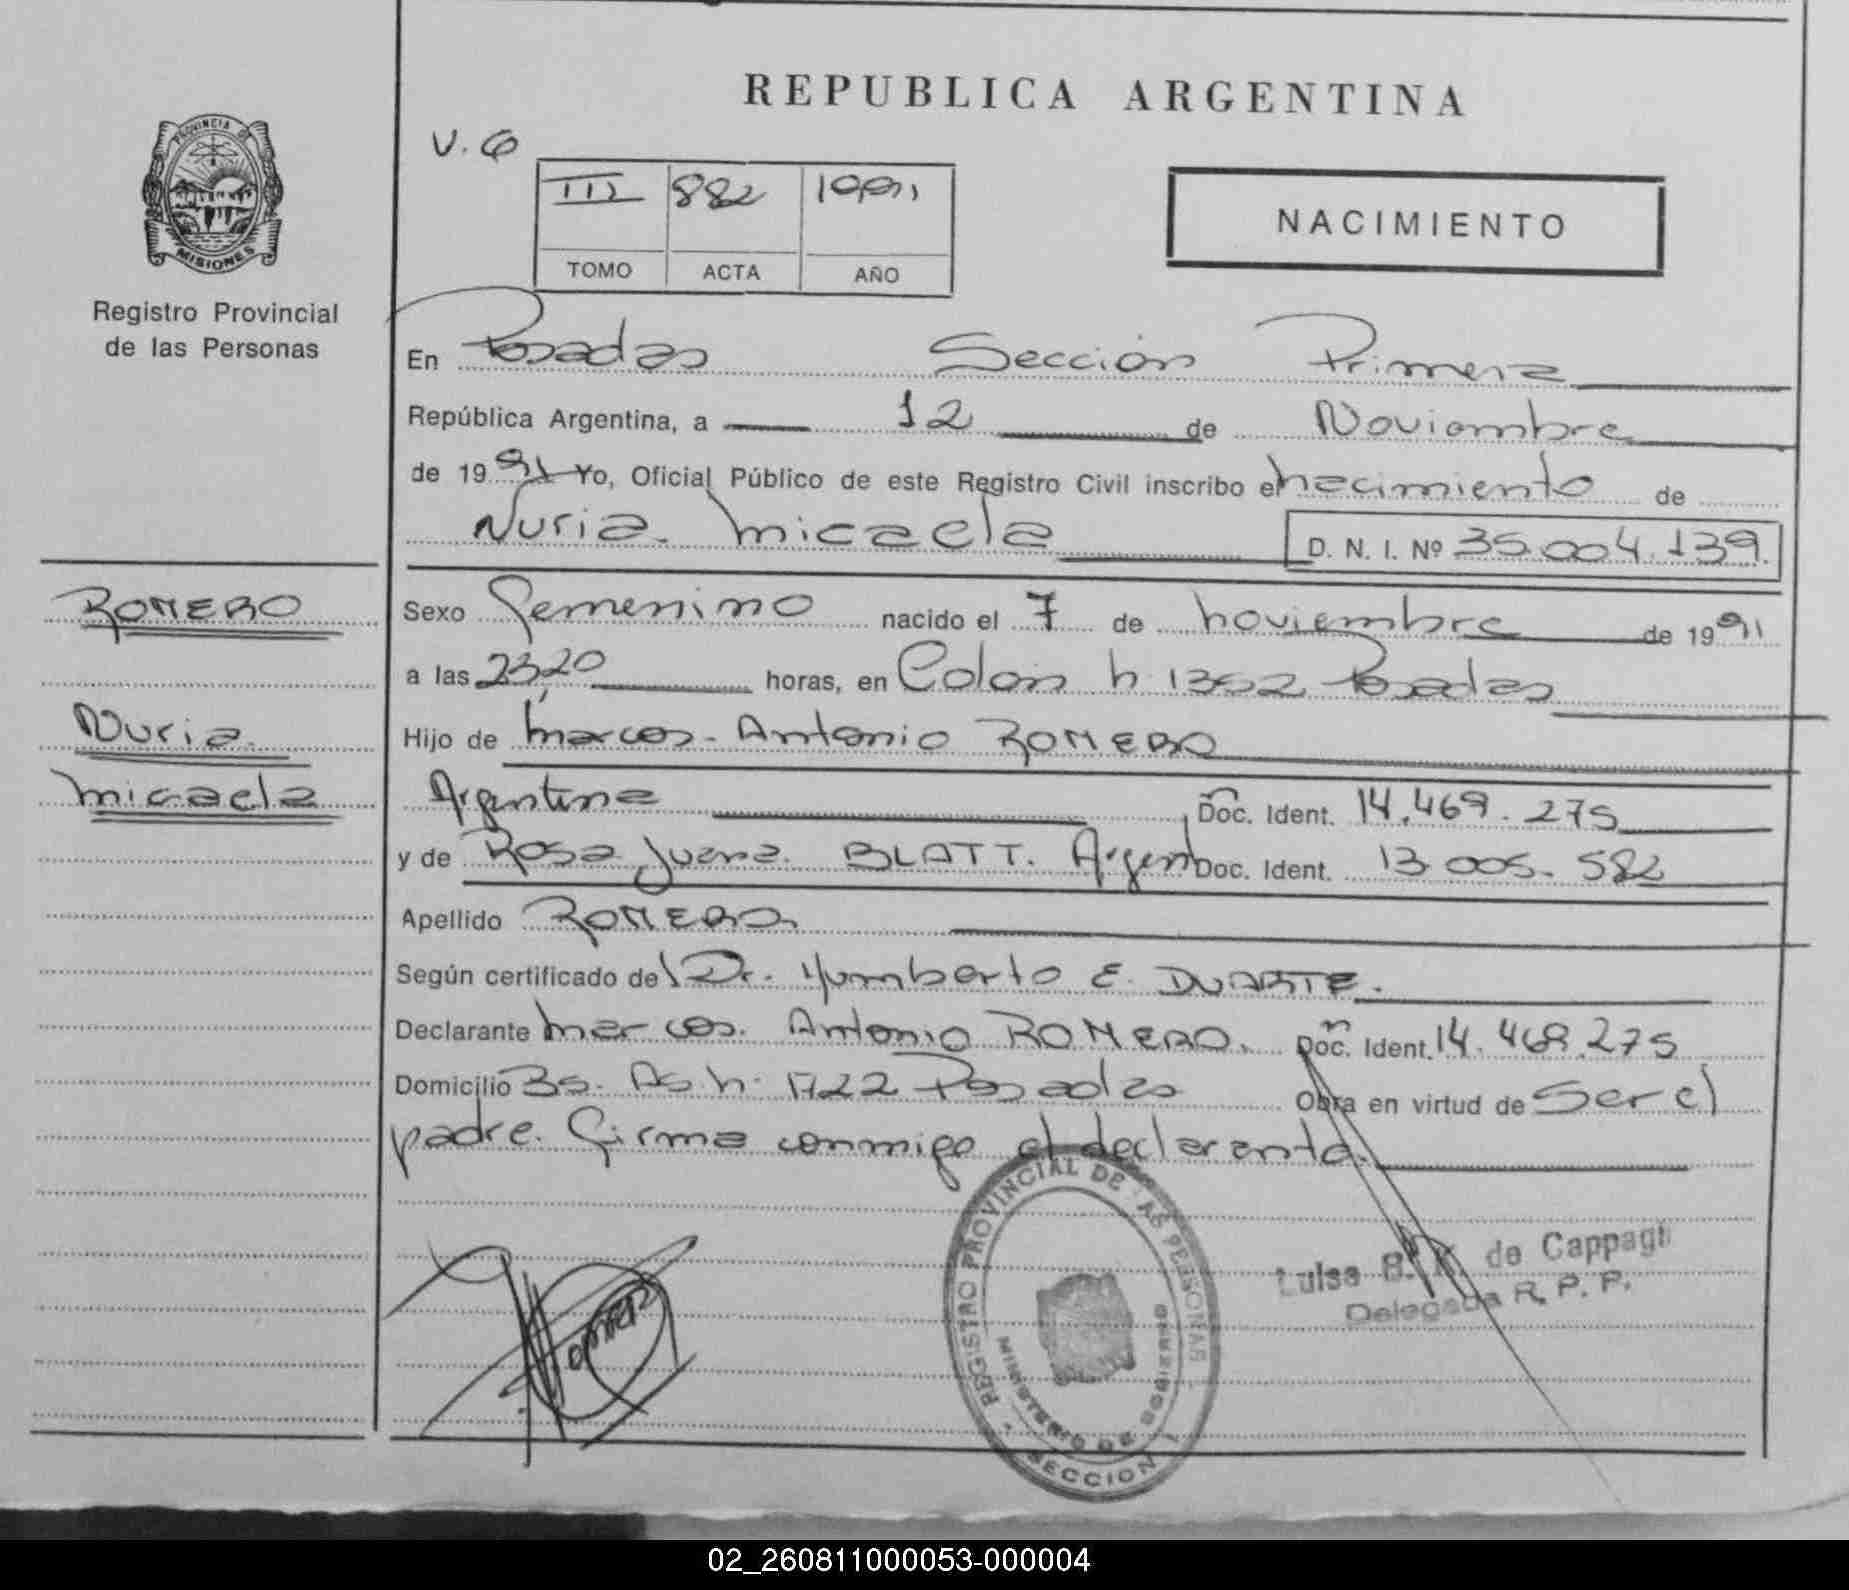 REPUBLICA ARGENTINA
PROVINCIA DE
MISIONES
Registro Provincial
de las Personas
V. 6
III 882 1991
TOMO ACTA AÑO
NACIMIENTO
En Posadas Sección Primera
República Argentina, a 12 de Noviembre
de 1991 Yo, Oficial Público de este Registro Civil inscribo el nacimiento de
Nuria Micaela D. N. I. Nº 35.004.139.
ROMERO
Sexo Femenino nacido el 7 de noviembre de 1991
a las 23,20 horas, en Colón n. 1352 Posadas
Nuria
Hijo de Marcos Antonio ROMERO
Micaela
Argentina Doc. Ident. 14.469.275
y de Rosa Juana BLATT. Argent Doc. Ident. 13.005.582
Apellido ROMERO
Según certificado del Dr. Humberto E. DUARTE.
Declarante Marcos Antonio ROMERO. Doc. Ident. 14.469.275
Domicilio Bs. As. n. 1722 Posadas Obra en virtud de Ser el
padre. Firma conmigo el declarante.
REGISTRO PROVINCIAL DE LAS PERSONAS
MINISTERIO DE GOBIERNO
SECCION 1
Luisa B. K. de Cappagli
Delegada R. P. P.
02_260811000053-000004